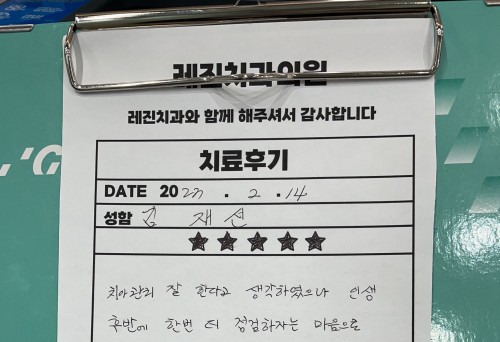 레진치과의원
레진치과와 함께 해주셔서 감사합니다
치료후기
DATE 2023 . 2 . 14
성함 김 재선
★★★★★
치아관리 잘 한다고 생각하였으나 인생
후반에 한번 더 점검하자는 마음으로